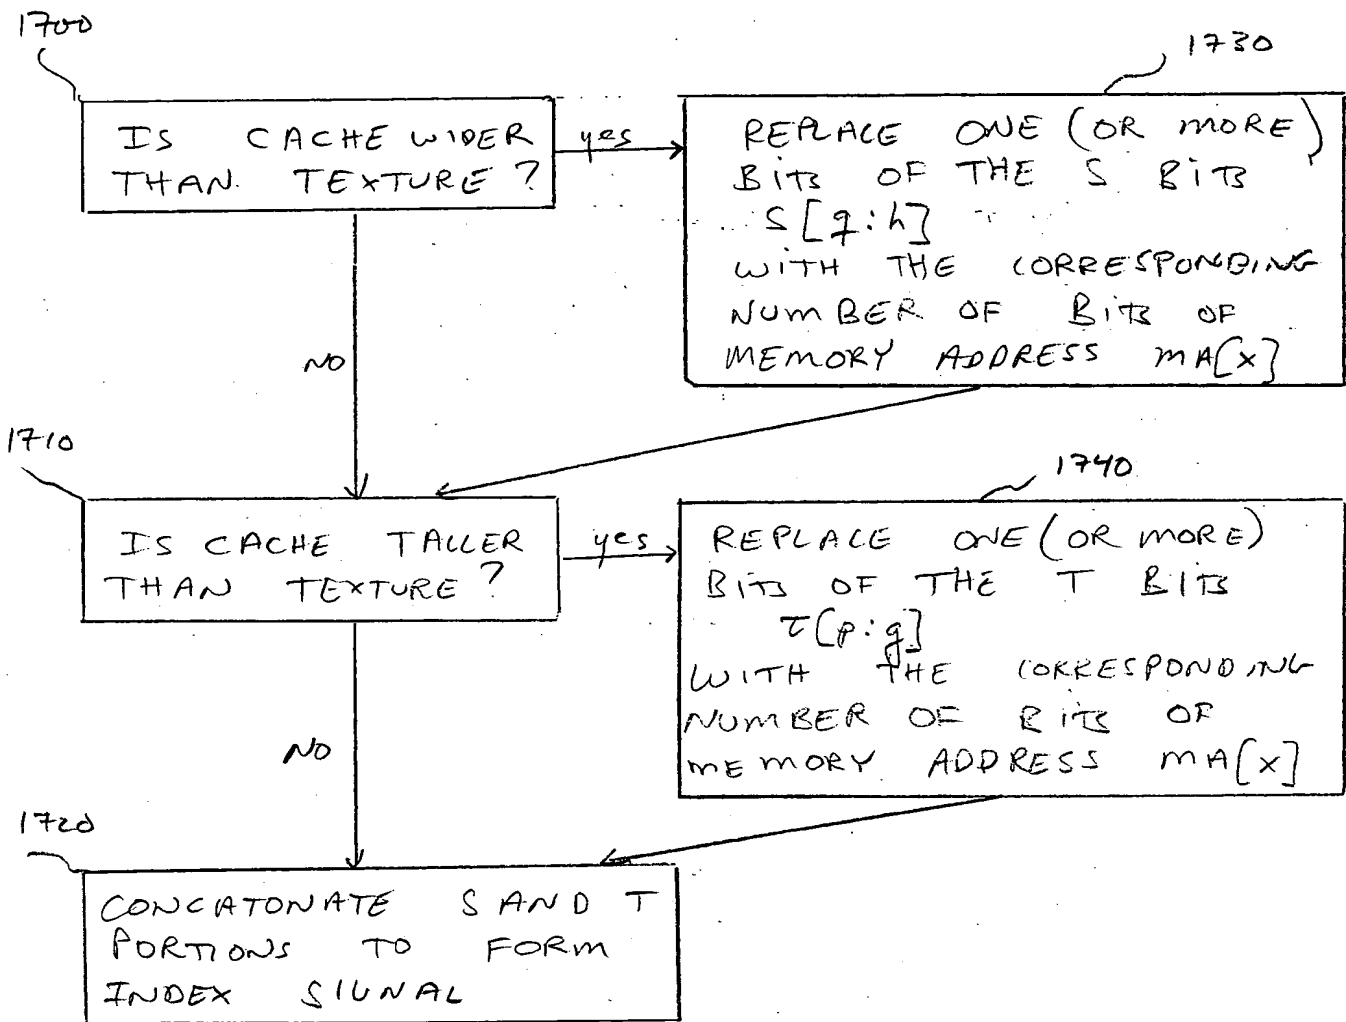 1700
IS CACHE WIDER
THAN TEXTURE ?
yes
1730
REPLACE ONE (OR MORE)
BITS OF THE S BITS
S[q:h]
WITH THE CORRESPONDING
NUMBER OF BITS OF
MEMORY ADDRESS MA[x]
NO
1710
IS CACHE TALLER
THAN TEXTURE ?
yes
1740
REPLACE ONE (OR MORE)
BITS OF THE T BITS
T[p:g]
WITH THE CORRESPONDING
NUMBER OF BITS OF
MEMORY ADDRESS MA[x]
NO
1720
CONCATONATE S AND T
PORTIONS TO FORM
INDEX SIGNAL